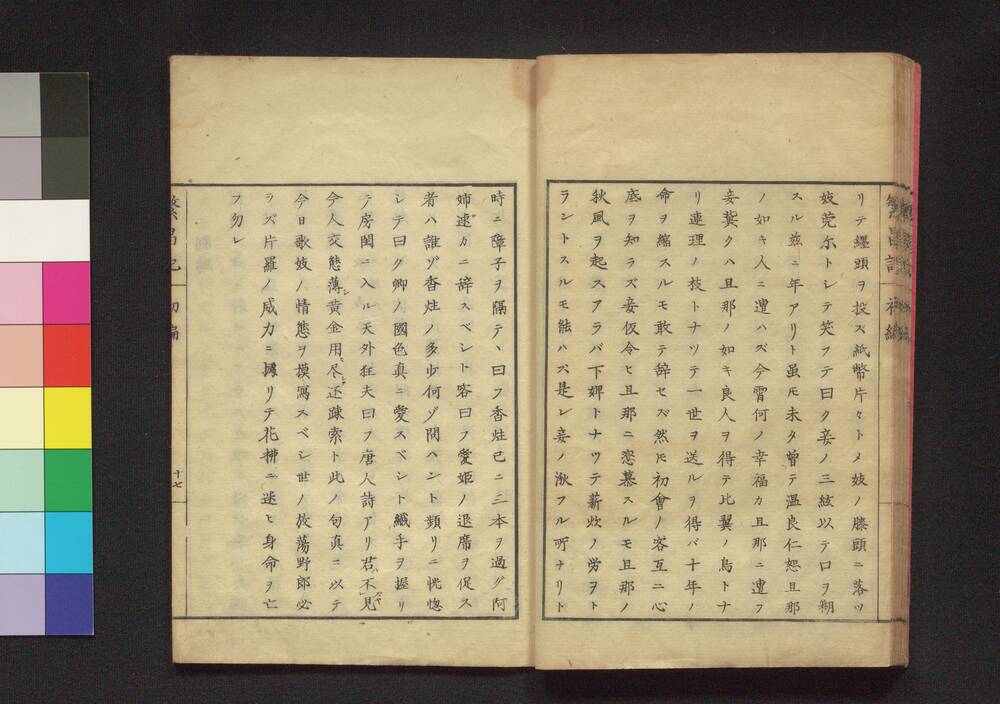 リテ纒頭ヲ投ス紙幣片々トメ妓ノ膝頭ニ落ツ
妓莞尓トシテ笑フテ曰ク妾ノ三絃以テ口ヲ糊
スル茲ニ年アリト虽𪜈未タ曽テ温良仁恕且那
ノ如キ人ニ遭ハズ今霄何ノ幸福カ且那ニ遭フ
妾冀クハ且那ノ如キ良人ヲ得テ比翼ノ鳥トナ
リ連理ノ枝トナツテ一世ヲ送ルヲ得バ十年ノ
命ヲ縮スルモ敢テ辞セズ然𪜈初會ノ客互ニ心
底ヲ知ラズ妾仮令ヒ且那ニ恋慕スルモ且那ノ
秋風ヲ起スアラバ下婢トナツテ薪炊ノ労ヲト
ラントスルモ能ハズ是レ妾ノ湫フル所ナリト
時ニ障子ヲ隔テヽ曰フ香炷已ニ三本ヲ過グ阿
姉速カニ辞スベシト客曰フ愛姫ノ退席ヲ促ス
者ハ誰ゾ香炷ノ多少何ゾ問ハント頻リニ恍惚
シテ曰ク卿ノ國色真ニ愛スベシト纎手ヲ握リ
テ房闥ニ入ル天外狂夫曰フ唐人詩アリ君不見
今人交態薄黄金用尽还疎索ト此ノ句真ニ以テ
今日歌妓ノ情態ヲ摸寫スベシ世ノ放蕩野郎必
ラズ片羅ノ威力ニ摶リテ花栁ニ迷ヒ身命ヲ亡
フ勿レ
繁昌記 初編
十七